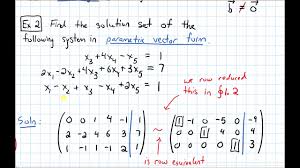 b ≠ 0
Ex 2 Find the solution set of the
following system in parametric vector form
x₃ + 4x₄ - x₅ = 1
2x₁ - 2x₂ + 4x₃ + 6x₄ + 3x₅ = 7
x₁ - x₂ + x₃ - x₄ + 2x₅ = 1
we row reduced
this in §1.2
Soln:
0 0 1 4 -1 | 1
2 -2 4 6 3 | 7
1 -1 1 -1 2 | 1
~
1 -1 0 -5 0 | -4
0 0 1 4 0 | 4
0 0 0 0 1 | 3
is row equivalent